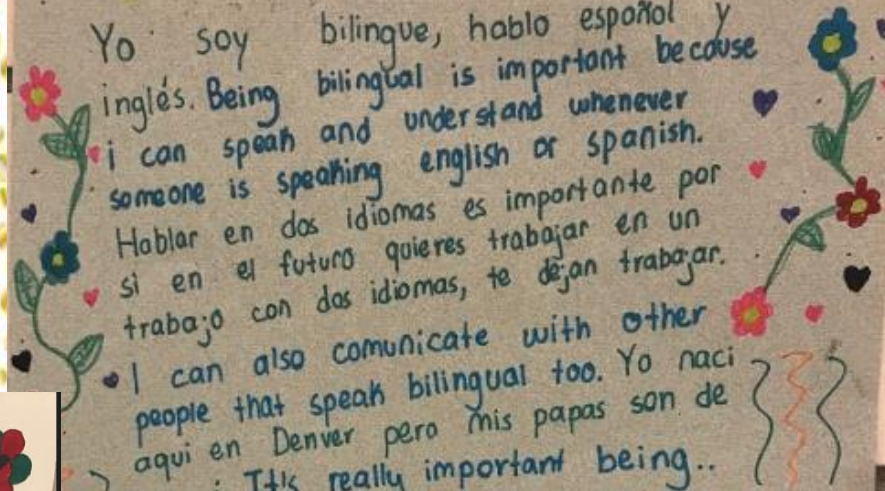 Yo soy bilingue, hablo español y
inglés. Being bilingual is important because
i can speak and understand whenever
someone is speaking english or spanish.
Hablar en dos idiomas es importante por
si en el futuro quieres trabajar en un
trabajo con dos idiomas, te dejan trabajar.
I can also comunicate with other
people that speak bilingual too. Yo naci
aqui en Denver pero mis papas son de
It's really important being..